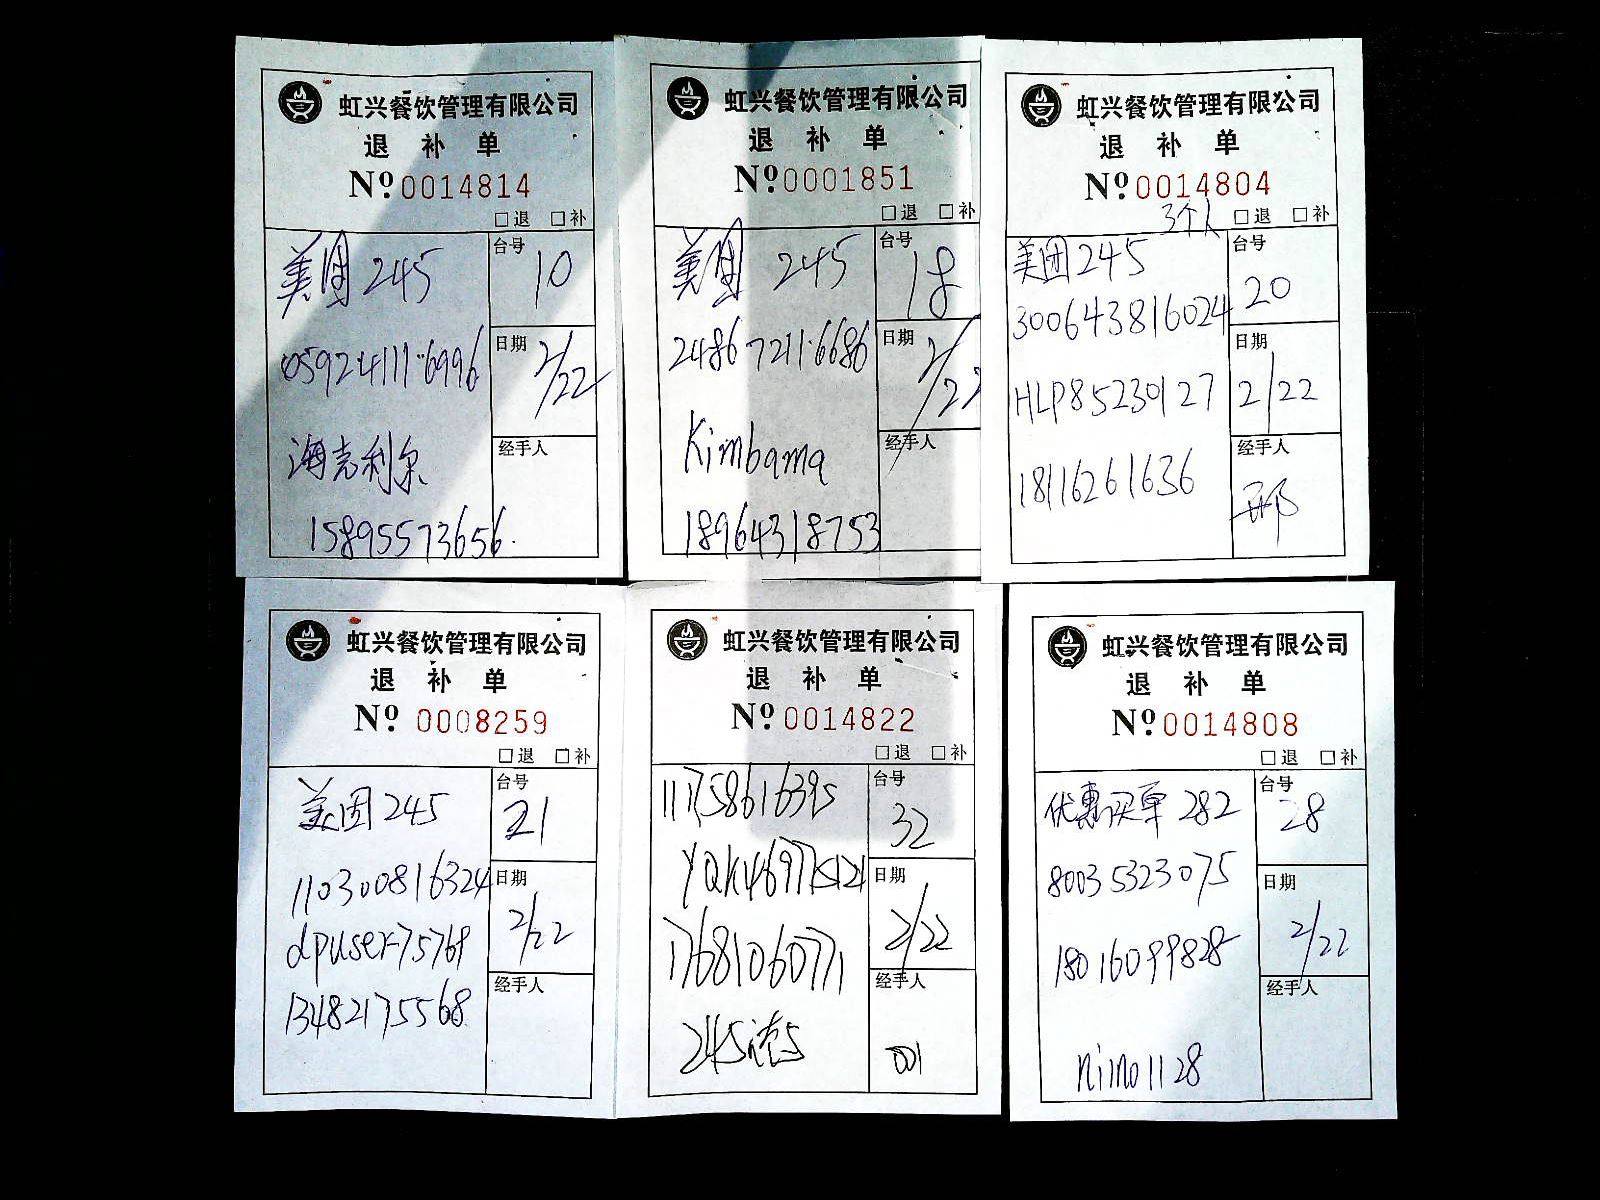 虹兴餐饮管理有限公司
退 补 单
Nº 0014814
□退 □补
美团 245
台号
10
05924111 6996
日期
2/22
海克利尔
经手人
15895573656.
虹兴餐饮管理有限公司
退 补 单
Nº 0001851
□退 □补
美团 245
台号
18
248672116686
日期
2/22
Kimbama
经手人
18964318753
虹兴餐饮管理有限公司
退 补 单
Nº 0014804
3个人 □退 □补
美团245
台号
20
300643816024
日期
HLP85230127
2/22
经手人
18116261636
邢
虹兴餐饮管理有限公司
退 补 单
Nº 0008259
□退 □补
美团 245
台号
21
110300816324
日期
dpuser75769
2/22
经手人
13482175568
虹兴餐饮管理有限公司
退 补 单
Nº 0014822
□退 □补
11758616395
台号
32
日期
17681060771
2/22
经手人
245
001
虹兴餐饮管理有限公司
退 补 单
Nº 0014808
□退 □补
优惠买单 282
台号
28
80035323075
日期
18016099828
2/22
经手人
nimo1128